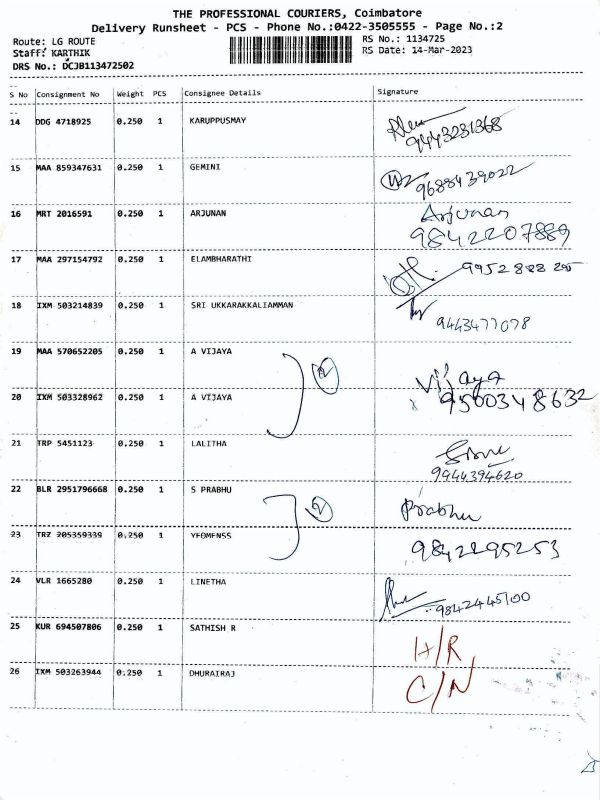 THE PROFESSIONAL COURIERS, Coimbatore
Delivery Runsheet - PCS - Phone No.:0422-3505555 - Page No.:2
Route: LG ROUTE RS No.: 1134725
Staff: KARTHIK RS Date: 14-Mar-2023
DRS No.: DCJB113472502
S No Consignment No Weight PCS Consignee Details Signature
14 DDG 4718925 0.250 1 KARUPPUSMAY
9443231368
15 MAA 859347631 0.250 1 GEMINI
9688439022
16 MRT 2016591 0.250 1 ARJUNAN Arjunan
9842207889
17 MAA 297154792 0.250 1 ELAMBHARATHI
18 IXM 503214839 0.250 1 SRI UKKARAKKALIAMMAN
9443477078
19 MAA 570652205 0.250 1 A VIJAYA
2 Vijaya
20 IXM 503328962 0.250 1 A VIJAYA 9500348632
21 TRP 5451123 0.250 1 LALITHA
9944394620
22 BLR 2951796668 0.250 1 S PRABHU
2 Prabhu
23 TRZ 205359339 0.250 1 YEOMENSS
9842295253
24 VLR 1665280 0.250 1 LINETHA
9842445100
25 KUR 694507806 0.250 1 SATHISH R
H/R
26 IXM 503263944 0.250 1 DHURAIRAJ
C/N